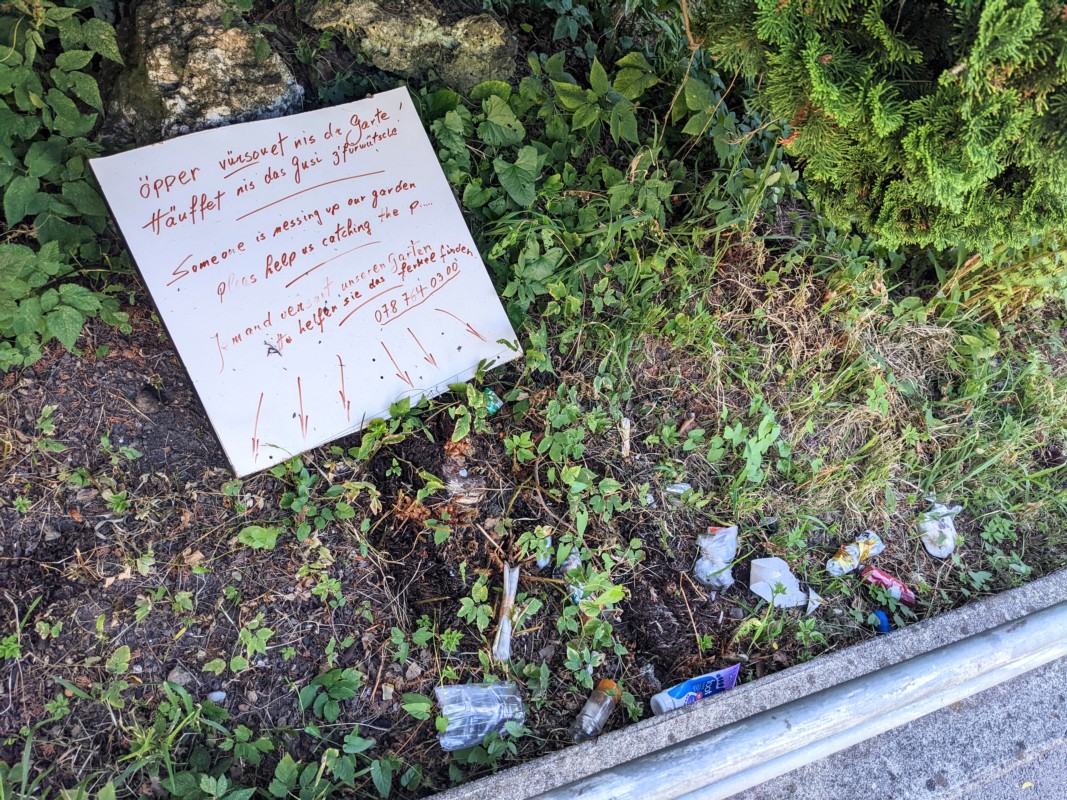 öpper vürsouet nis dr Garte!
Häuffet nis das Gusi z'fürwütsche!
Someone is messing up our garden
pleas help us catching the p.....
Jemand versaut unseren Garten
helfen sie das ferkel finden
078 764 09 00